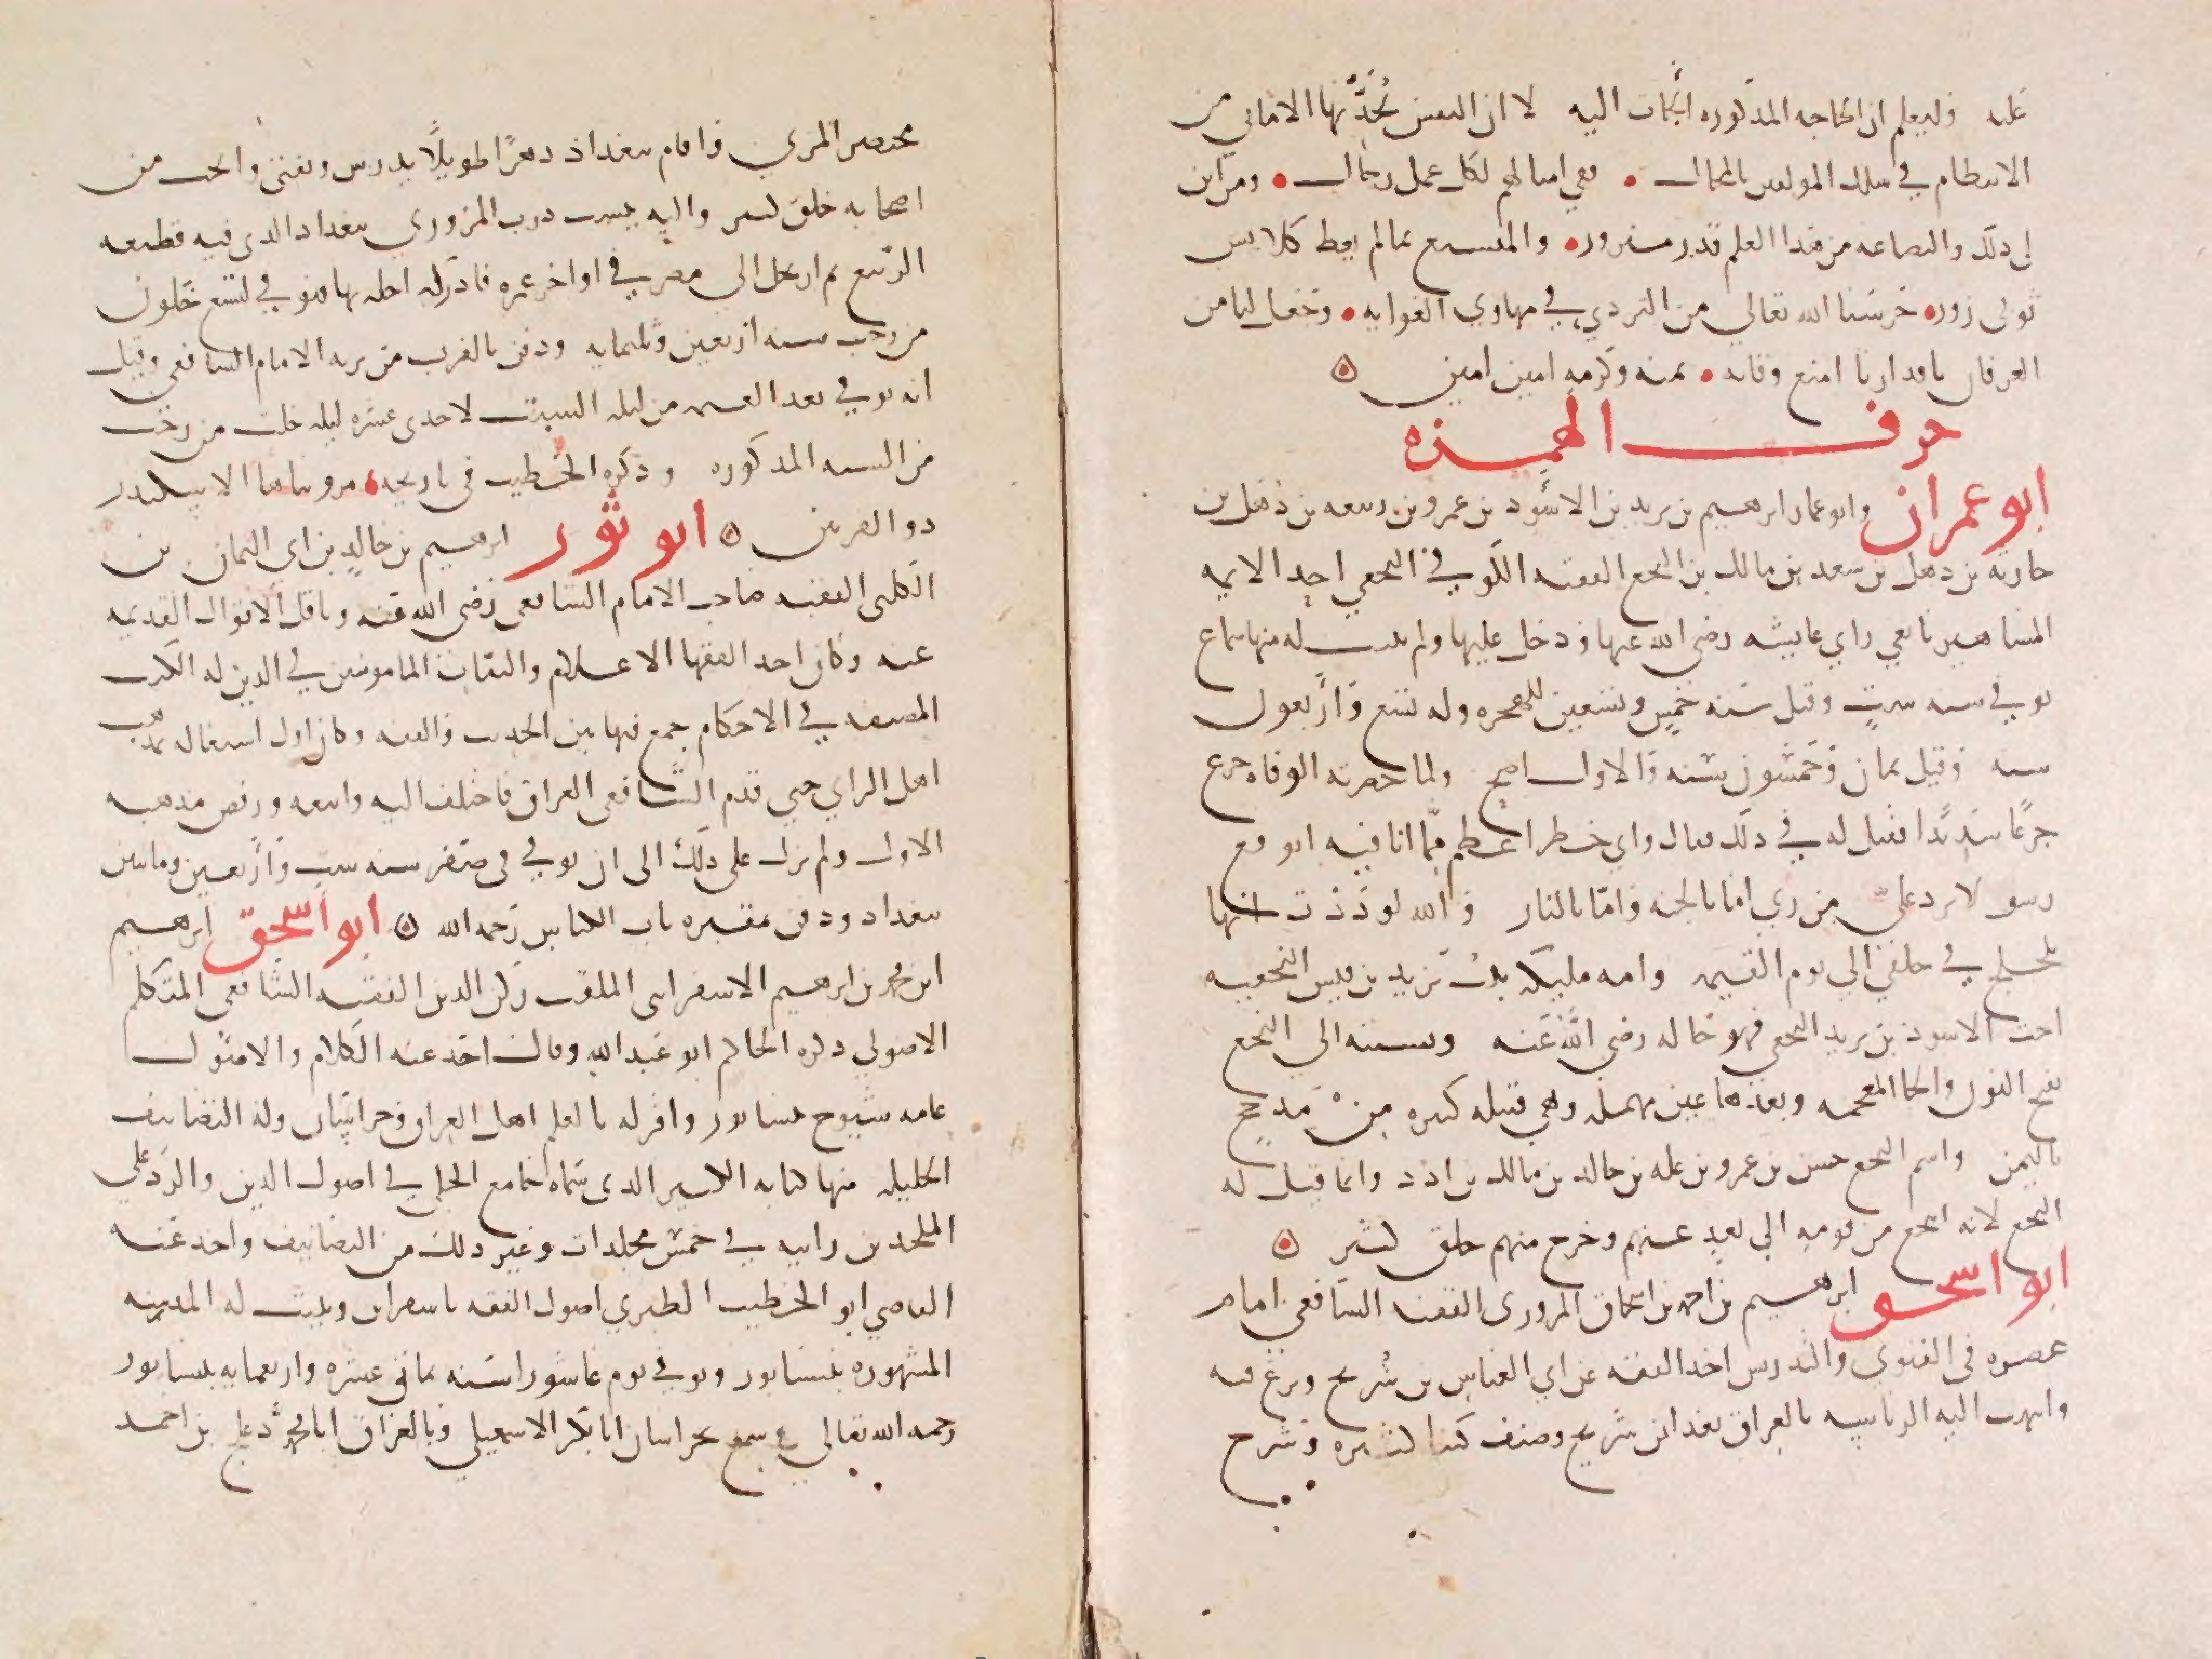 عليه وليعلم ان الحاجه المذكوره الجات اليه لا ان النفس تُحدِّثها الاماني من
الانتظام في سلك المولفين بالمحال • ففي امثالهم لكل عمل رجال • ومن اين
لي ذلك والبضاعه من هذا العلم قدر منزور • والمتشبع بما لم يعط كلابس
ثوبى زور • حرسنا الله تعالى من التردي في مهاوي الغوايه • وجعل لنا من
العرفان باقدارنا امنع وقايه • بمنه وكرمه امين امين
حرف الهمزه
ابو عمران وابو عمار ابرهيم بن يزيد بن الاسود بن عمرو بن ربيعه بن ذهل بن
حارثه بن ذهل بن سعد بن مالك بن النخع الفقيه الكوفي النخعي احد الايمه
المشاهير تابعي راى عايشه رضى الله عنها ودخل عليها ولم يثبت له منها سماع
توفي سنه ست وقيل سنه خمس وتسعين للهجره وله تسع واربعون
سنه وقيل ثمان وخمسون سنه والاول اصح ولما حضرته الوفاه جزع
جزعًا شديدًا فقيل له في ذلك فقال واي خطر اعظم مما انا فيه اتوقع
رسولا يرد علىّ من ربي اما بالجنه واما بالنار والله لوددت انها
تلجلج في حلقي الى يوم القيمه وامه مليكه بنت يزيد بن قيس النخعيه
اخت الاسود بن يزيد النخعي فهو خاله رضى الله عنه ونسبته الى النخع
بفتح النون والخا المعجمه وبعدها عين مهمله وهي قبيله كبيره من مذحج
باليمن واسم النخع جسر بن عمرو بن عله بن خالد بن مالك بن ادد وانما قيل له
النخع لانه انتخع من قومه اي بعد عنهم وخرج منهم خلق كثير
ابو اسحق ابرهيم بن احمد بن اسحاق المروزي الفقيه الشافعي امام
عصره في الفتوى والتدريس اخذ الفقه عن ابي العباس بن سُريج وبرع فيه
وانتهت اليه الرياسه بالعراق بعد ابن سريج وصنف كتبا كثيره وشرح
مختصر المزني واقام ببغداد دهرًا طويلًا يدرس ويفتي وانجب من
اصحابه خلق كثير واليه ينسب درب المروزي ببغداد الذى فيه قطيعه
الربيع ثم ارتحل الى مصر في اواخر عمره فادركه اجله بها فتوفي لتسع خلون
من رجب سنه اربعين وثلثمايه ودفن بالقرب من تربه الامام الشافعي وقيل
انه توفي بعد العتمه من ليله السبت لاحدى عشره ليله خلت من رجب
من السنه المذكوره وذكره الخطيب في تاريخه • مرو بناها الاسكندر
ذو القرنين ابو ثور ابرهيم بن خالد بن ابي اليمان بن
الكلبى الفقيه صاحب الامام الشافعي رضى الله عنه وناقل الاقوال القديمه
عنه وكان احد الفقها الاعلام والثقات المامونين في الدين له الكتب
المصنفه في الاحكام جمع فيها بين الحديث والفقه وكان اول اشتغاله بمذهب
اهل الراي حتى قدم الشافعي العراق فاختلف اليه واتبعه ورفض مذهبه
الاول ولم يزل على ذلك الى ان توفي في صفر سنه ست واربعين وماتين
ببغداد ودفن بمقبره باب الكناس رحمه الله ابو اسحق ابرهيم
ابن محمد بن ابرهيم الاسفرايني الملقب ركن الدين الفقيه الشافعي المتكلم
الاصولي ذكره الحاكم ابو عبد الله وقال اخذ عنه الكلام والاصول
عامه شيوخ نيسابور واقر له بالعلم اهل العراق وخراسان وله التصانيف
الجليله منها كتابه الكبير الذى سماه جامع الحلي في اصول الدين والرد على
الملحدين رايته في خمس مجلدات وغير ذلك من التصانيف واخذ عنه
القاضي ابو الخطيب الطبري اصول الفقه باسفراين وبنيت له المدرسه
المشهوره بنيسابور وتوفي يوم عاشورا سنه ثماني عشره واربعمايه بنيسابور
رحمه الله تعالى سمع بخراسان ابا بكر الاسمعيلي وبالعراق ابا محمد دعلج بن احمد